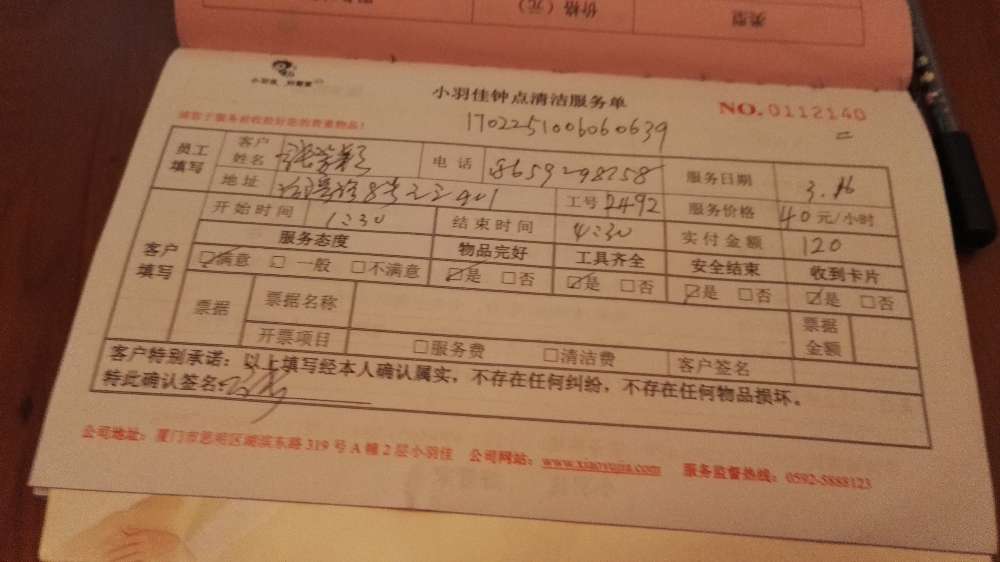 价格（元）
类型
小羽佳
小羽佳钟点清洁服务单
NO. 0112140
1702251006060639
请您于服务前收捡好您的贵重物品！
员工填写 客户姓名 电话 18659298258 服务日期 3.16
地址 工号 D492 服务价格 40元/小时
客户填写 开始时间 1:30 结束时间 4:30 实付金额 120
服务态度 物品完好 工具齐全 安全结束 收到卡片
☑满意 □一般 □不满意 ☑是 □否 ☑是 □否 ☑是 □否 ☑是 □否
票据 票据名称 票据金额
开票项目 □服务费 □清洁费 客户签名
客户特别承诺：以上填写经本人确认属实，不存在任何纠纷，不存在任何物品损坏。
特此确认签名：
公司地址：厦门市思明区湖滨东路319号A幢2层小羽佳 公司网站：www.xiaoyujia.com 服务监督热线：0592-5888123